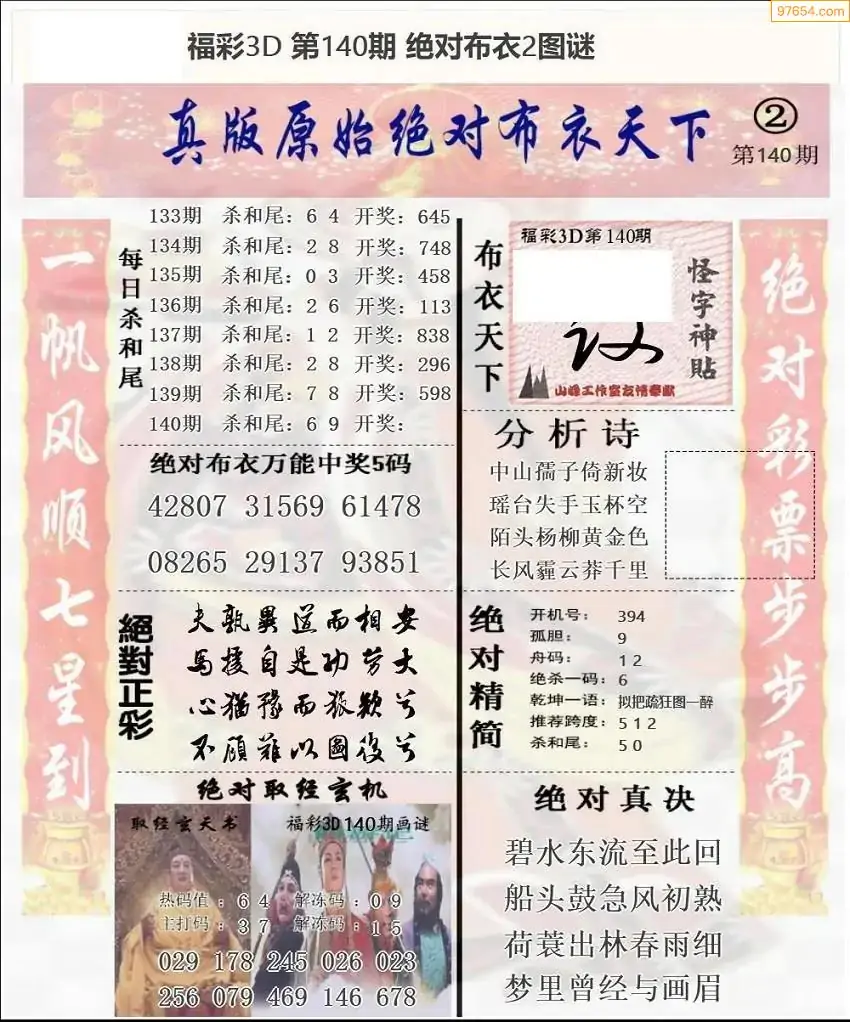 97654.com
福彩3D 第140期 绝对布衣2图谜
真版原始绝对布衣天下
②
第140期
一帆风顺七星到
每日杀和尾
133期 杀和尾：6 4 开奖：645
134期 杀和尾：2 8 开奖：748
135期 杀和尾：0 3 开奖：458
136期 杀和尾：2 6 开奖：113
137期 杀和尾：1 2 开奖：838
138期 杀和尾：2 8 开奖：296
139期 杀和尾：7 8 开奖：598
140期 杀和尾：6 9 开奖：
绝对布衣万能中奖5码
42807 31569 61478
08265 29137 93851
絕對正彩
夫孰異道而相安
馬援自是功勞大
心猶豫而狐疑兮
不顧難以圖後兮
绝对取经玄机
取经玄天书
福彩3D140期画谜
热码值：6 4 解冻码：0 9
主打码：3 7 解冻码：1 5
029 178 245 026 023
256 079 469 146 678
布衣天下
福彩3D第140期
怪字神贴
山峰工作室友情奉献
分析诗
中山孺子倚新妆
瑶台失手玉杯空
陌头杨柳黄金色
长风霾云莽千里
绝对精简
开机号：394
孤胆：9
舟码：1 2
绝杀一码：6
乾坤一语：拟把疏狂图一醉
推荐跨度：5 1 2
杀和尾：5 0
绝对真决
碧水东流至此回
船头鼓急风初熟
荷蓑出林春雨细
梦里曾经与画眉
绝对彩票步步高